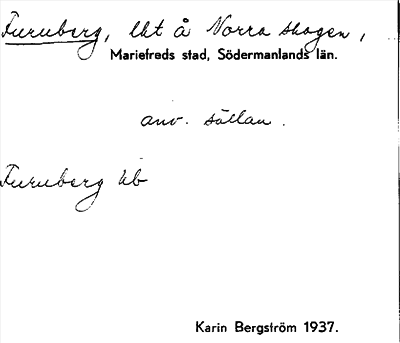 Furuberg, lht å Norra skogen,
Mariefreds stad, Södermanlands län.
anv. sällan.
Furuberg Ub
Karin Bergström 1937.